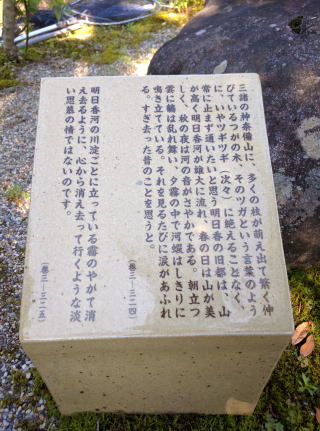 三諸の神奈備山に、多くの枝が萌え出て繁く伸
びているつがの木、そのツガという言葉のよう
に、いやツギツギ(次々)に絶えることなく、
常に止まず通いたいと思う明日香の旧都は、山
が高く明日香河が雄大に流れ、春の日は山が美
しく、秋の夜は河の音がさやかである。朝立つ
雲に鶴は乱れ舞い、夕霧の中で河蝦はしきりに
鳴き立てている。それを見るたびに涙があふれ
る。すぎ去った昔のことを思うと。
(巻三―三二四)
明日香河の川淀ごとに立っている霧のやがて消
え去るように、心から消え去って行くような淡
い思慕の情ではないのです。
(巻三―三二五)